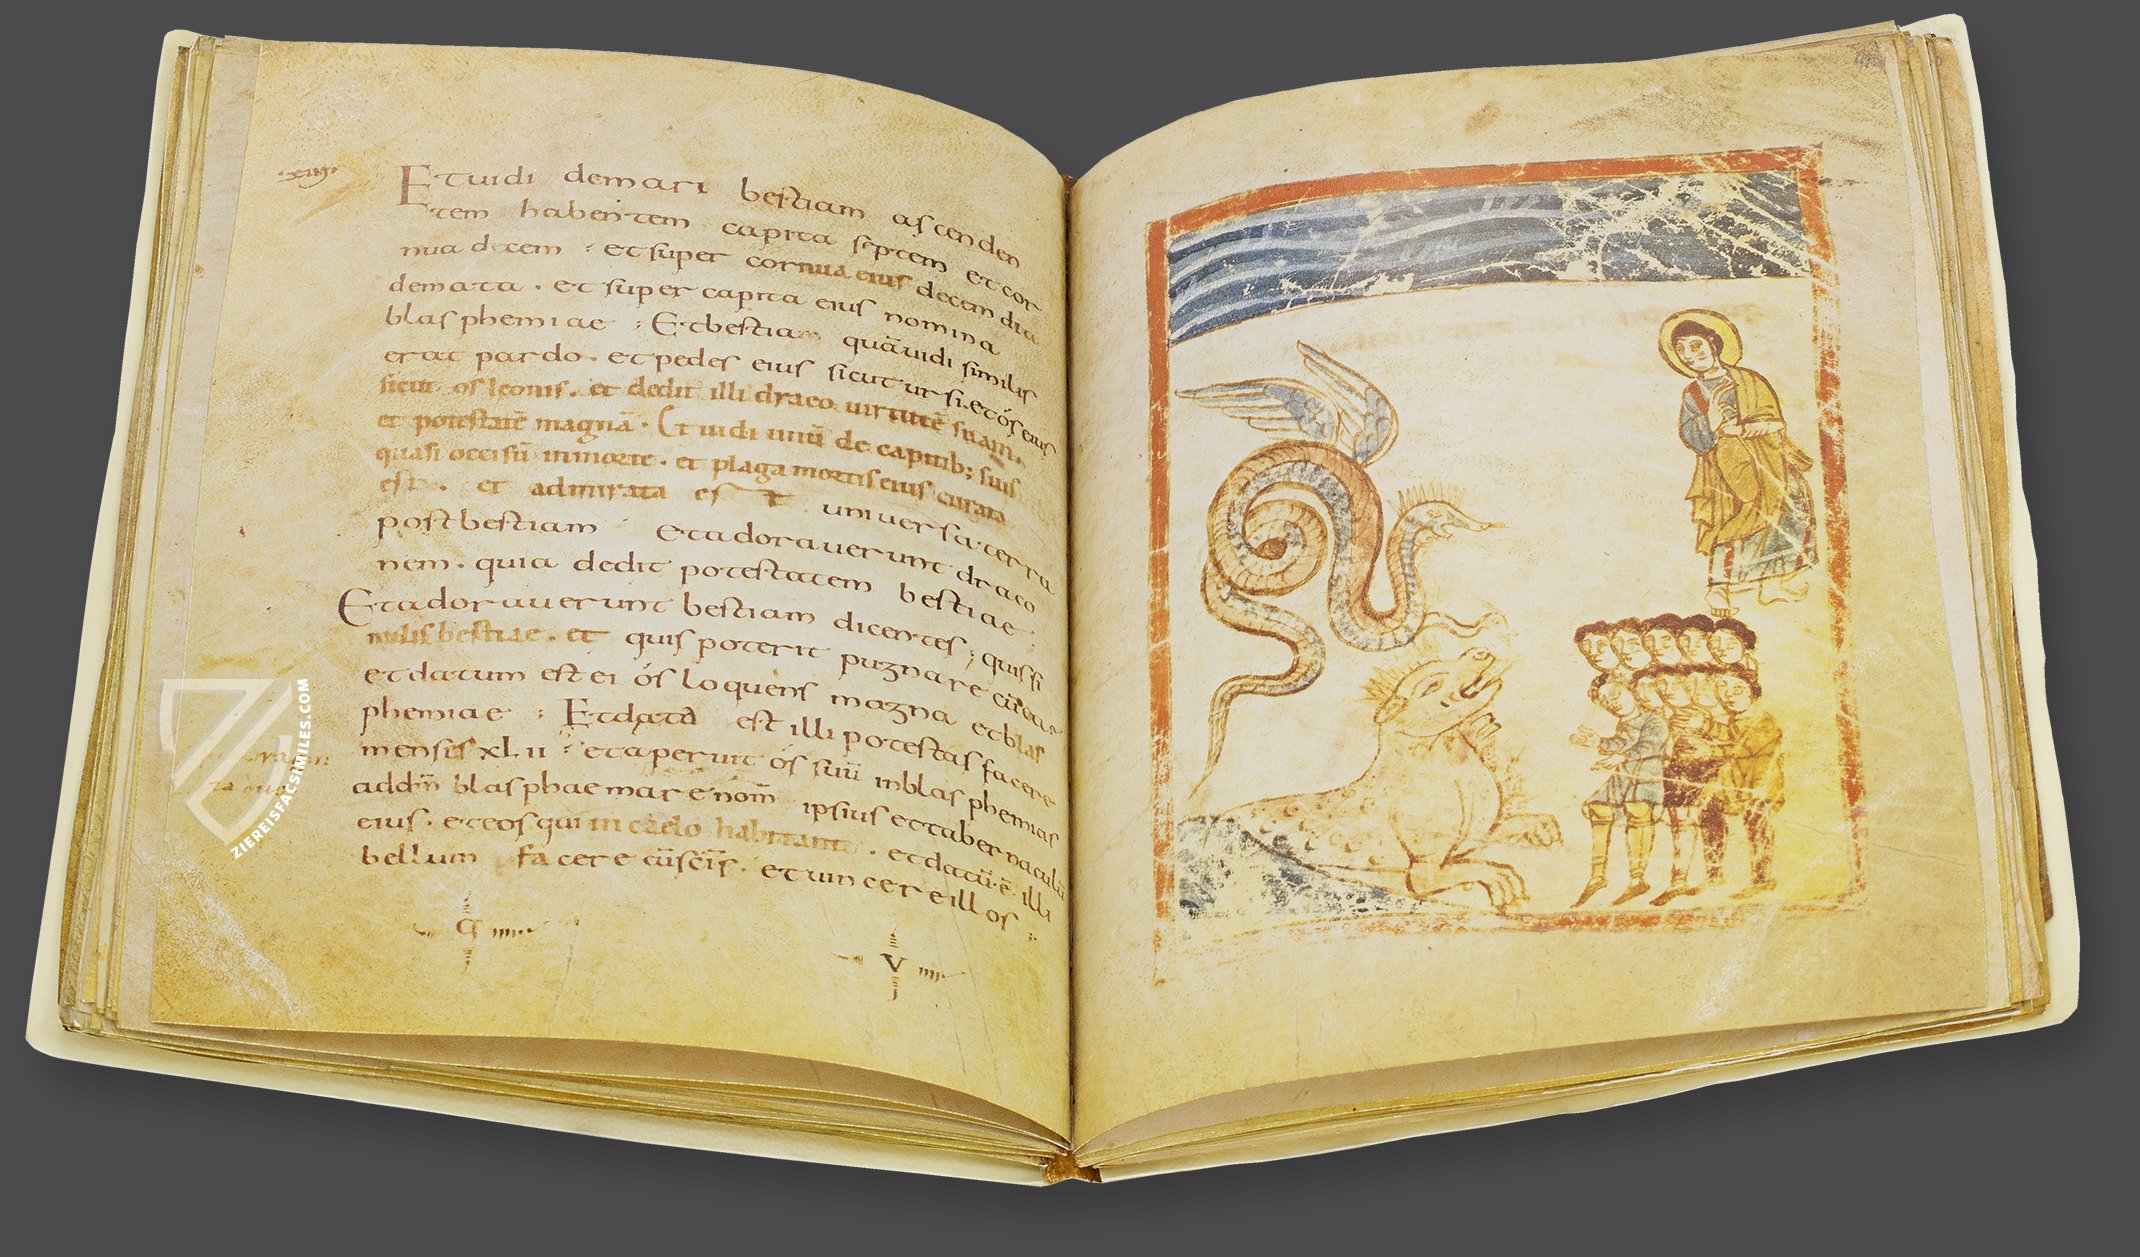 Et uidi de mari bestiam ascenden
tem habentem capita septem et cor
nua decem : et super cornua eius decem dia
demata . et super capita eius nomina
blasphemiae : Et bestiam quā uidi similis
erat pardo . et pedes eius sicut ursi . et ós eius
sicut os leonis . et dedit illi draco uirtutē suam .
et potestatē magnā . Et uidi unū de capitib; suis
quasi occisū in morte . et plaga mortis eius curata
est . et admirata est uniuersa terra
post bestiam Et adorauerunt draco
nem . quia dedit potestatem bestiae ;
Et adorauerunt bestiam dicentes ; quis si
milis bestiae . et quis poterit pugnare cū ea
et datum est ei ós loquens magna et blas
phemiae : Et data est illi potestas facere
menses xlii : et aperuit ós suū in blasphemias
ad dm̄ blasphaemare nom̄ ipsius et tabernaculū
eius . et eos qui in caelo habitant . et datū ē illi
bellum facere cū scīs . et uincere illos ;
V
ZIEREISFACSIMILES.COM